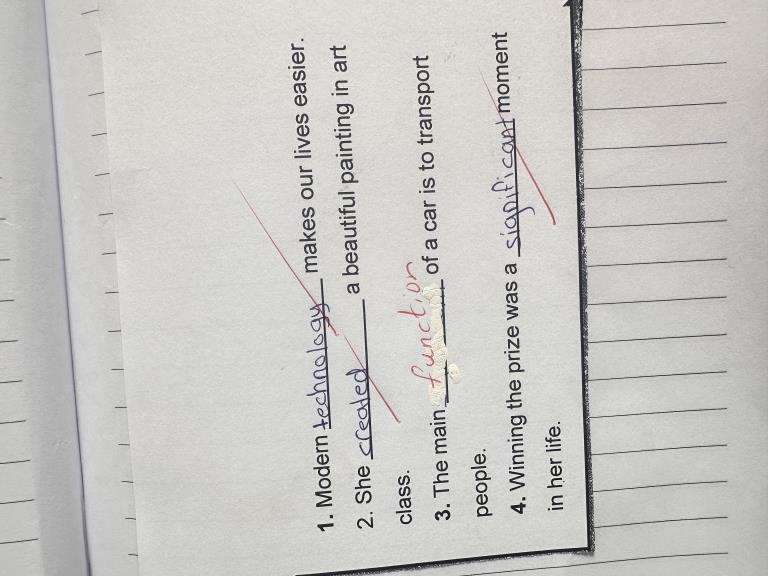 1. Modern technology makes our lives easier.
2. She created a beautiful painting in art
class.
3. The main function of a car is to transport
people.
4. Winning the prize was a significant moment
in her life.